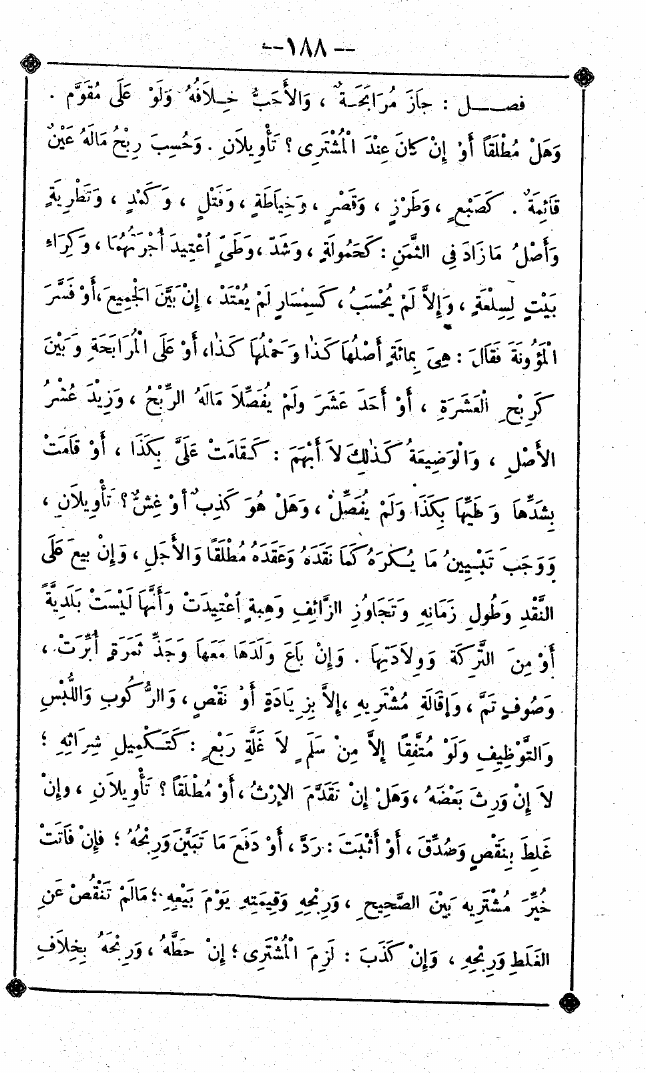 --١٨٨--
فصـــل : جَازَ مُرَابَحَةٌ ، وَالأَحَبُّ خِلَافُهُ وَلَوْ عَلَى مُقَوَّمٍ .
وَهَلْ مُطْلَقاً أَوْ إِنْ كَانَ عِنْدَ الْمُشْتَرِى ؟ تَأْوِيلاَنِ . وَحُسِبَ رِبْحُ مَالَهُ عَيْنٌ
قَائِمَةٌ . كَصَبْغٍ ، وَطَرْزٍ ، وَقَصْرٍ ، وَخِيَاطَةٍ ، وَفَتْلٍ ، وَكَمْدٍ ، وَتَطْرِيَةٍ
وَأَصْلُ مَازَادَ فِى الثَّمَنِ : كَحُمُولَةٍ ، وَشَدٍّ ، وَطَىٍّ اعْتِيدَ أُجْرَتُهُمَا ، وَكِرَاءِ
بَيْتٍ لِسِلْعَةٍ ، وَإِلاَّ لَمْ يُحْسَبْ ، كَسِمْسَارٍ لَمْ يُعْتَدْ ، إِنْ بَيَّنَ الْجَمِيعَ ، أَوْ فَسَّرَ
الْمَؤُونَةَ فَقَالَ : هِىَ بِمائَةٍ أَصْلُهَا كَذَا وَحَمْلُهَا كَذَا ، أَوْ عَلَى الْمُرَابَحَةِ وَبَيَّنَ
كَرِبْحِ الْعَشَرَةِ ، أَوْ أَحَدَ عَشَرَ وَلَمْ يُفَصِّلاَ مَالَهُ الرِّبْحُ ، وَزِيْدَ عُشْرُ
الأَصْلِ ، وَالْوَضِيعَةُ كَذٰلِكَ لاَ أَبْهَمَ : كَقَامَتْ عَلَىَّ بِكَذَا ، أَوْ قَامَتْ
بِشَدِّهَا وَطَيِّهَا بِكَذَا وَلَمْ يُفَصِّلْ ، وَهَلْ هُوَ كَذِبٌ أَوْ غِشٌّ ؟ تَأْوِيلاَنِ ،
وَوَجَبَ تَبْيِينُ مَا يُكْرَهُ كَمَا نَقَدَهُ وَعَقَدَهُ مُطْلَقاً وَالأَجَلِ ، وَإِنْ بِيعَ عَلَى
النَّقْدِ وَطُولِ زَمَانِهِ وَتَجَاوُزِ الزَّائِفِ وَهِبَةٍ اعْتِيدَتْ وَأَنَّهَا لَيْسَتْ بَلَدِيَّةً
أَوْ مِنَ التَّرِكَةِ وَوِلاَدَتِهَا . وَإِنْ بَاعَ وَلَدَهَا مَعَهَا وَجَذِّ ثَمَرَةٍ أُبِّرَتْ ،
وَصُوفٍ تَمَّ ، وَإِقَالَةِ مُشْتَرِيهِ ، إِلاَّ بِزِيَادَةٍ أَوْ نَقْصٍ ، وَالرُّكُوبِ وَاللُّبْسِ
وَالتَّوْظِيفِ وَلَوْ مُتَّفِقًا إِلاَّ مِنْ سَلَمٍ لاَ غَلَّةِ رَبْعٍ : كَتَكْمِيلِ شِرَائِهِ ؛
لاَ إِنْ وَرِثَ بَعْضَهُ ، وَهَلْ إِنْ تَقَدَّمَ الإِرْثُ ، أَوْ مُطْلَقاً ؟ تَأْوِيلاَنِ ، وَإِنْ
غَلِطَ بِنَقْصٍ وَصُدِّقَ ، أَوْ أَثْبَتَ : رَدَّ ، أَوْ دَفَعَ مَا تَبَيَّنَ وَرِبْحُهُ ؛ فَإِنْ فَاتَتْ
خُيِّرَ مُشْتَرِيهِ بَيْنَ الصَّحِيحِ ، وَرِبْحِهِ وَقِيمَتِهِ يَوْمَ بَيْعِهِ ؛ مَالَمْ تَنْقُصْ عَنِ
الغَلَطِ وَرِبْحِهِ ، وَإِنْ كَذَبَ : لَزِمَ الْمُشْتَرِى ؛ إِنْ حَطَّهُ ، وَرِبْحَهُ بِخِلاَفِ